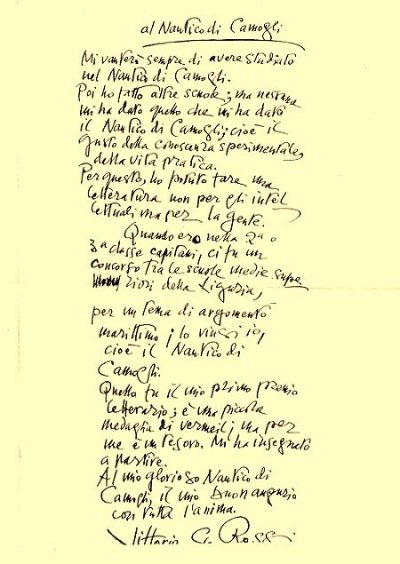 al Nautico di Camogli
Mi vanterò sempre di avere studiato
nel Nautico di Camogli.
Poi ho fatto altre scuole; ma nessuna
mi ha dato quello che mi ha dato
il Nautico di Camogli; cioè il
gusto della conoscenza sperimentale,
della vita pratica.
Per questo, ho potuto fare una
letteratura non per gli intel
lettuali ma per la gente.
Quando ero nella 2ª o
3ª classe capitani, ci fu un
concorso tra le scuole medie supe
riori della Liguria,
per un tema di argomento
marittimo; lo vinsi io,
cioè il Nautico di
Camogli.
Quello fu il mio primo premio
letterario; è una piccola
medaglia di vermeil; ma per
me è un tesoro. Mi ha insegnato
a partire.
Al mio glorioso Nautico di
Camogli, il mio buon augurio
con tutta l'anima.
Vittorio G. Rossi